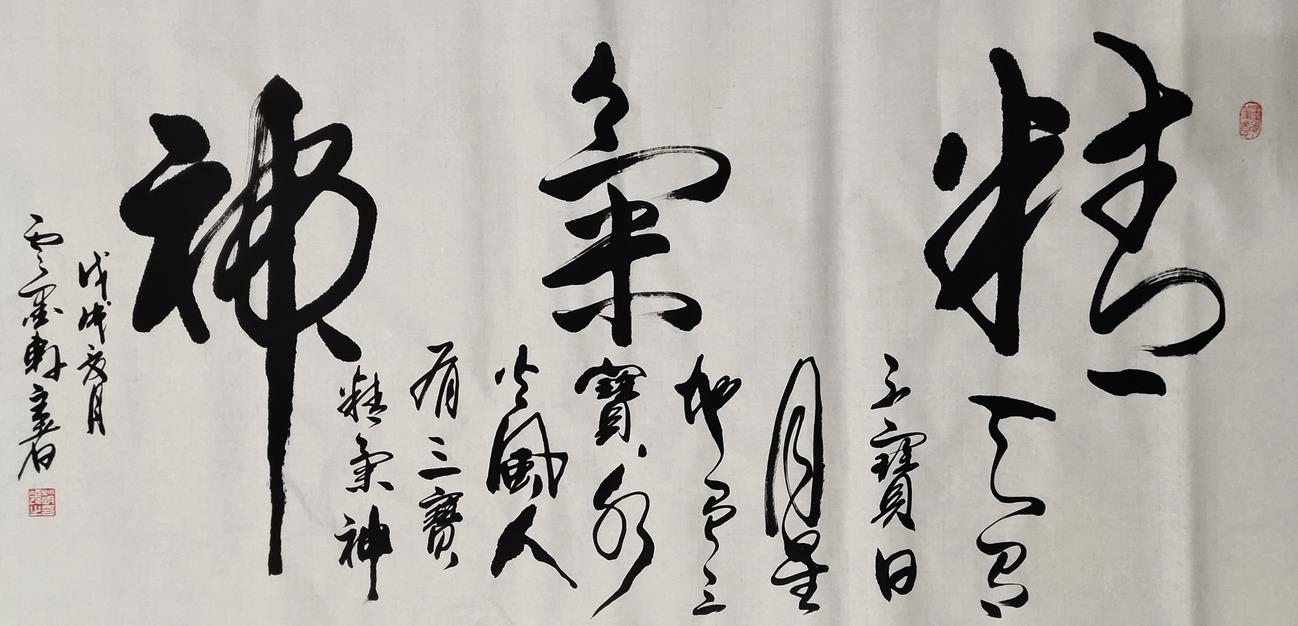 精氣神
天有
三寶日
月星
地有三
寶水
火風人
有三寶
精氣神
戊戌夏月
雲墨軒主書